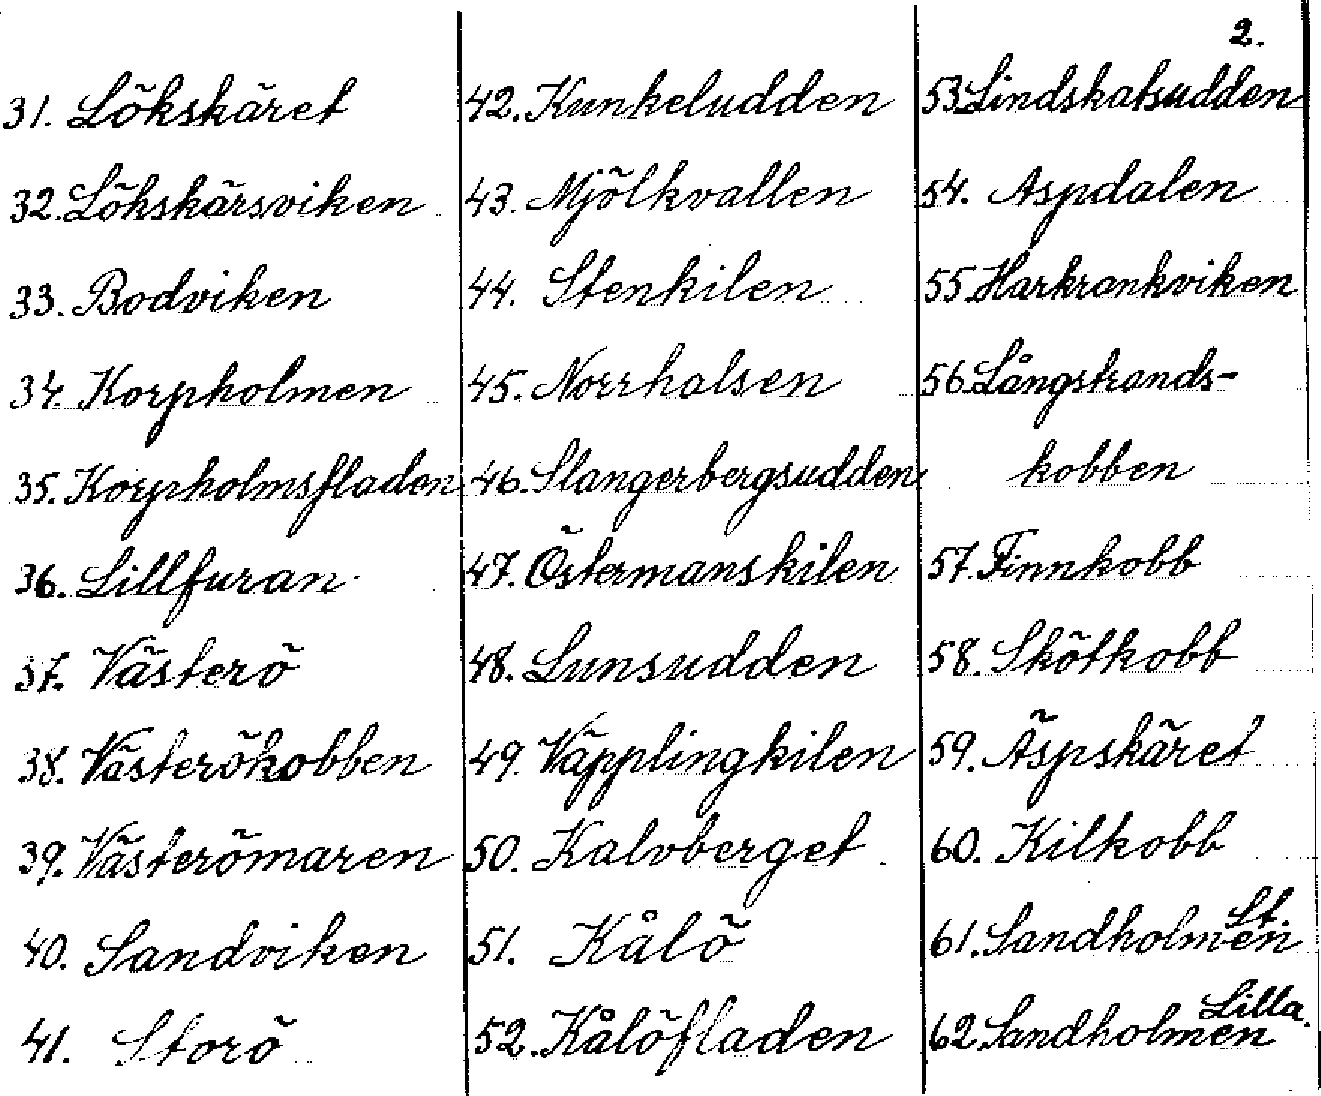 2.
31. Lökskäret
32. Lökskärsviken
33. Bodviken
34. Korpholmen
35. Korpholmsfladen
36. Lillfuran
37. Västerö
38. Västerökobben
39. Västerömaren
40. Sandviken
41. Storö
42. Kunkeludden
43. Mjölkvallen
44. Stenkilen
45. Norrhalsen
46. Slangerbergsudden
47. Östermanskilen
48. Lunsudden
49. Väpplingkilen
50. Kalvberget
51. Kålö
52. Kålöfladen
53. Lindskatsudden
54. Aspdalen
55. Harkrankviken
56. Långstrands-
kobben
57. Finnkobb
58. Skötkobb
59. Äspskäret
60. Kilkobb
61. Sandholmen St.
62. Sandholmen Lilla.